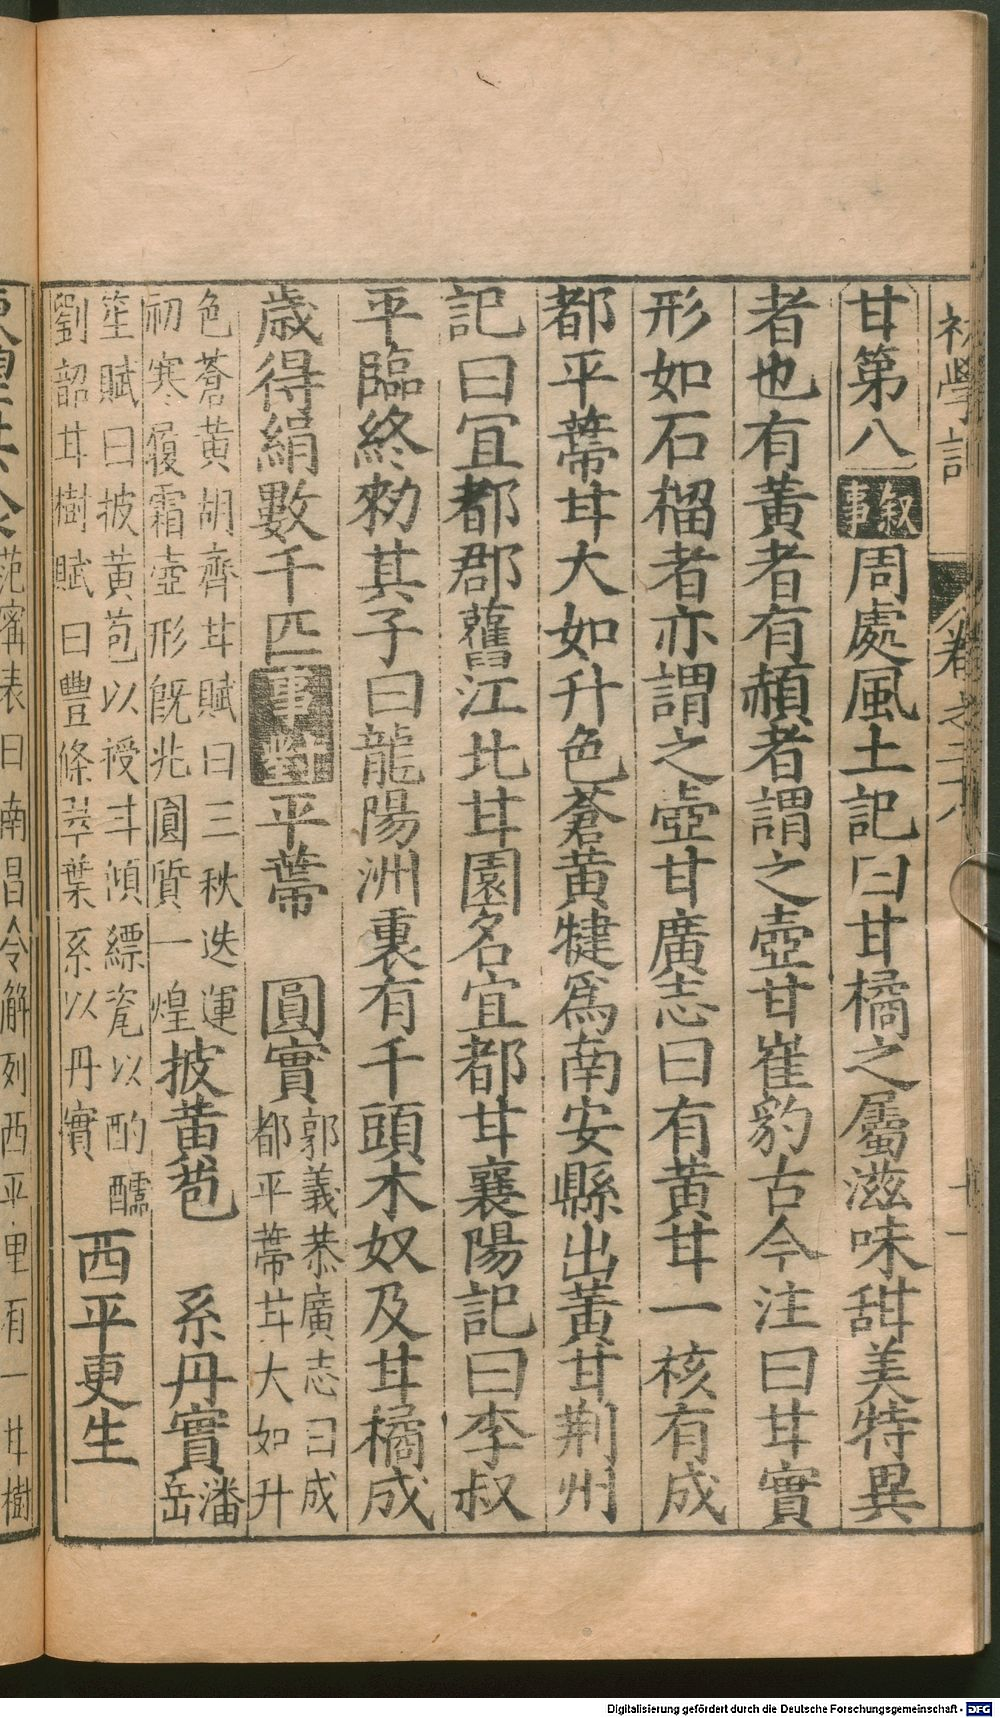 初學記
卷之二十八
十一
甘第八 叙事 周處風土記曰甘橘之屬滋味甜美特異
者也有黃者有頳者謂之壺甘崔豹古今注曰甘實
形如石榴者亦謂之壺甘廣志曰有黃甘一核有成
都平蔕甘大如升色蒼黃犍爲南安縣出黃甘荆州
記曰宜都郡舊江北甘園名宜都甘襄陽記曰李叔
平臨終勑其子曰龍陽洲裏有千頭木奴及甘橘成
歲得絹數千匹 事對 平蔕 圓實 郭義恭廣志曰成
都平蔕甘大如升
色蒼黃胡齊甘賦曰三秋迭運
初寒履霜壺形旣兆圓質一煌 披黃苞 系丹實 潘岳
笙賦曰披黃苞以授甘傾縹瓷以酌醽
劉韶甘樹賦曰豐條翠葉系以丹實 西平更生
范甯表曰南昌令解列西平里有一甘樹
Digitalisierung gefördert durch die Deutsche Forschungsgemeinschaft - DFG